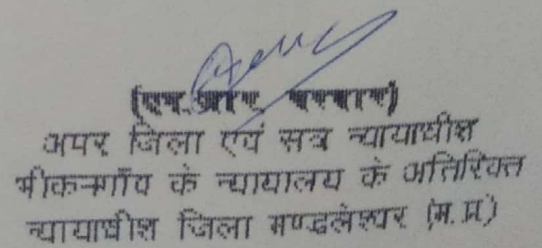 (एन.आर. परमार)
अपर जिला एवं सत्र न्यायाधीश
भीकनगाँव के न्यायालय के अतिरिक्त
न्यायाधीश जिला मण्डलेश्वर (म.प्र.)